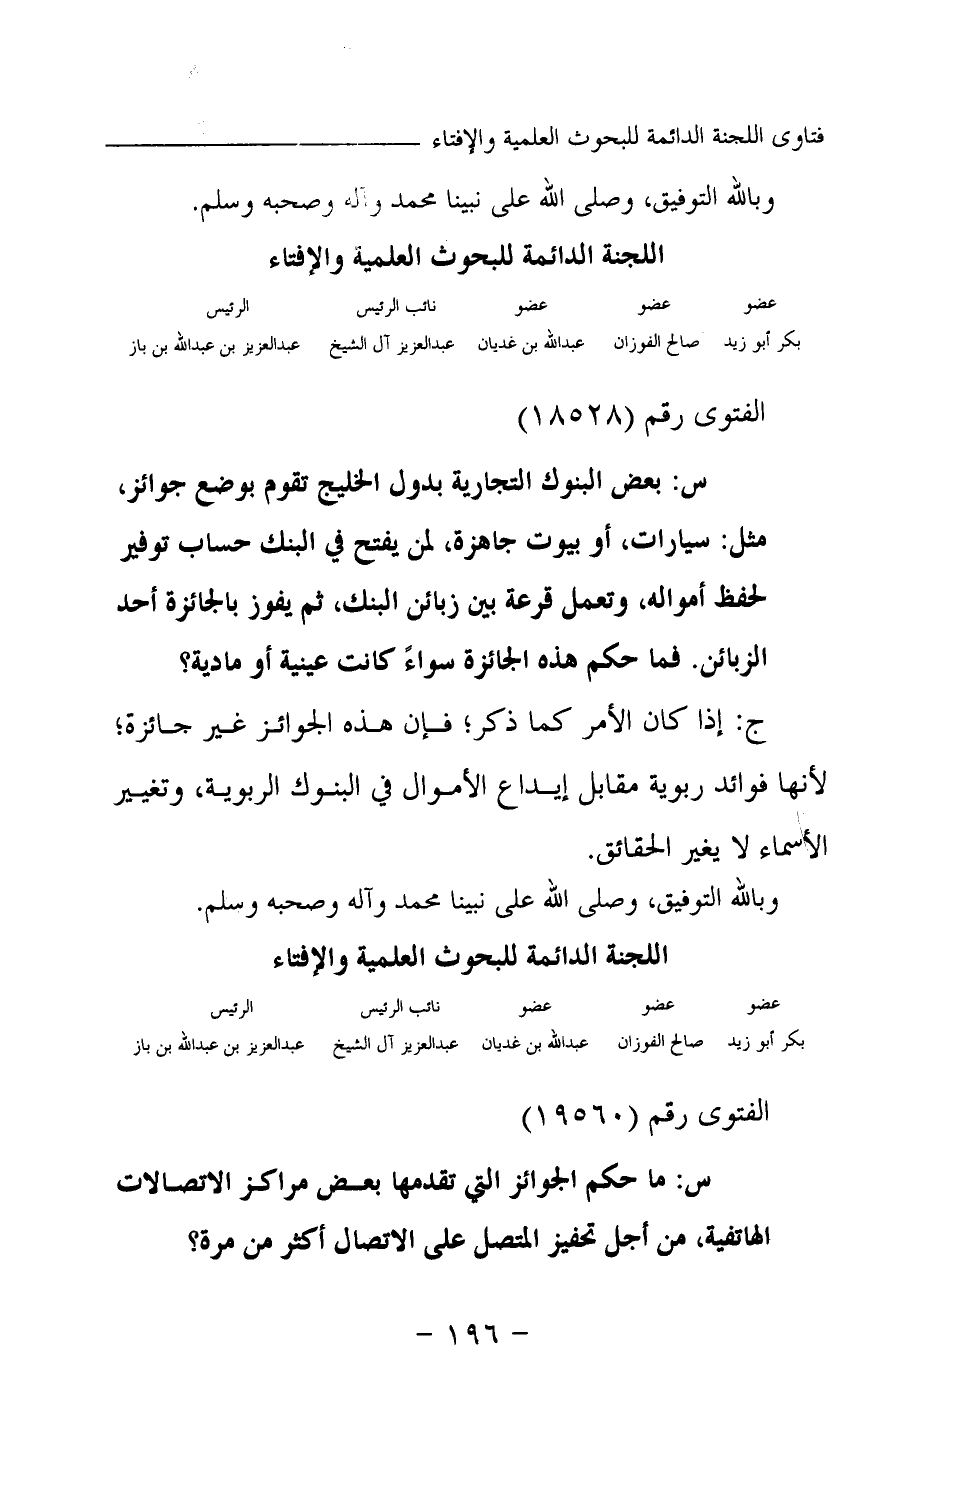 فتاوى اللجنة الدائمة للبحوث العلمية والإفتاء
وبالله التوفيق، وصلى الله على نبينا محمد وآله وصحبه وسلم.
اللجنة الدائمة للبحوث العلمية والإفتاء
عضو عضو عضو نائب الرئيس الرئيس
بكر أبو زيد صالح الفوزان عبدالله بن غديان عبدالعزيز آل الشيخ عبدالعزيز بن عبدالله بن باز
الفتوى رقم (١٨٥٢٨)
س: بعض البنوك التجارية بدول الخليج تقوم بوضع جوائز،
مثل: سيارات، أو بيوت جاهزة، لمن يفتح في البنك حساب توفير
لحفظ أمواله، وتعمل قرعة بين زبائن البنك، ثم يفوز بالجائزة أحد
الزبائن. فما حكم هذه الجائزة سواءً كانت عينية أو مادية؟
ج: إذا كان الأمر كما ذكر؛ فإن هذه الجوائز غير جائزة؛
لأنها فوائد ربوية مقابل إيداع الأموال في البنوك الربوية، وتغيير
الأسماء لا يغير الحقائق.
وبالله التوفيق، وصلى الله على نبينا محمد وآله وصحبه وسلم.
اللجنة الدائمة للبحوث العلمية والإفتاء
عضو عضو عضو نائب الرئيس الرئيس
بكر أبو زيد صالح الفوزان عبدالله بن غديان عبدالعزيز آل الشيخ عبدالعزيز بن عبدالله بن باز
الفتوى رقم (١٩٥٦٠)
س: ما حكم الجوائز التي تقدمها بعض مراكز الاتصالات
الهاتفية، من أجل تحفيز المتصل على الاتصال أكثر من مرة؟
- ١٩٦ -